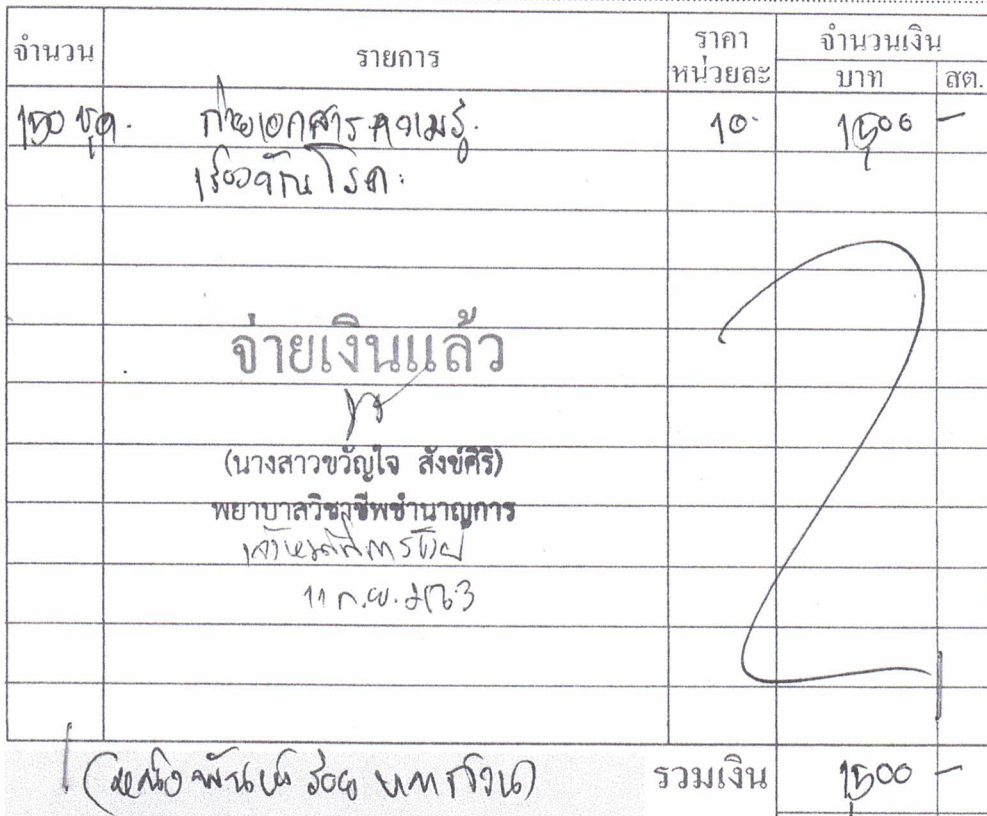 จำนวน รายการ ราคาหน่วยละ จำนวนเงิน
บาท สต.
150 ชุด. ถ่ายเอกสารความรู้. 10. 1500 -
เรื่องวัณโรค.
จ่ายเงินแล้ว
(นางสาวขวัญใจ สังข์ศิริ)
พยาบาลวิชาชีพชำนาญการ
11 ก.ย. 2563
(หนึ่งพันห้าร้อยบาทถ้วน) รวมเงิน 1500 -